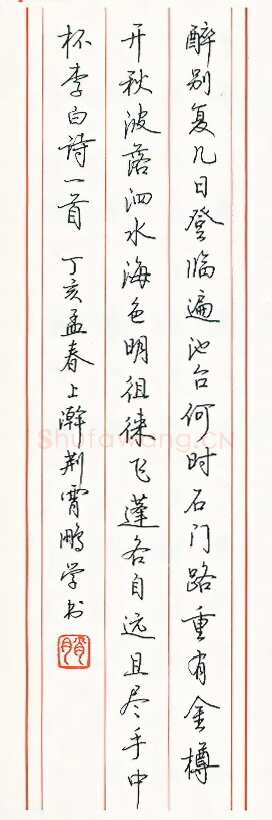 醉别复几日登临遍池台何时石门路重有金樽
开秋波落泗水海色明徂徕飞蓬各自远且尽手中
杯李白诗一首 丁亥孟春上澣荆霄鹏学书
Shufawang.CN